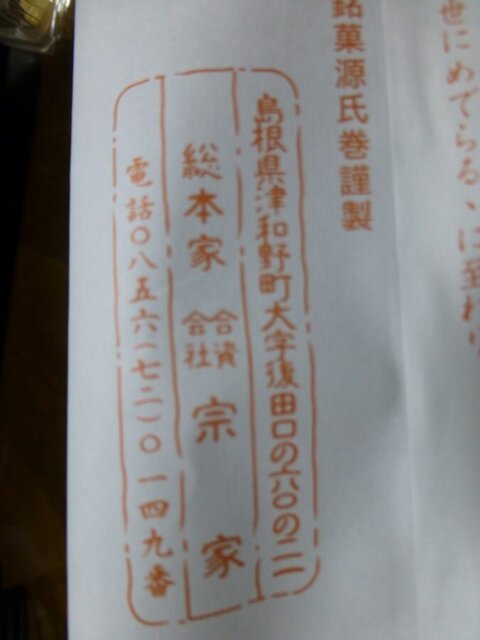 世にめでらるゝに至れり
銘菓源氏巻謹製
島根県津和野町大字後田口の六〇の二
総本家 合資会社 宗家
電話〇八五六(七二)〇一四九番